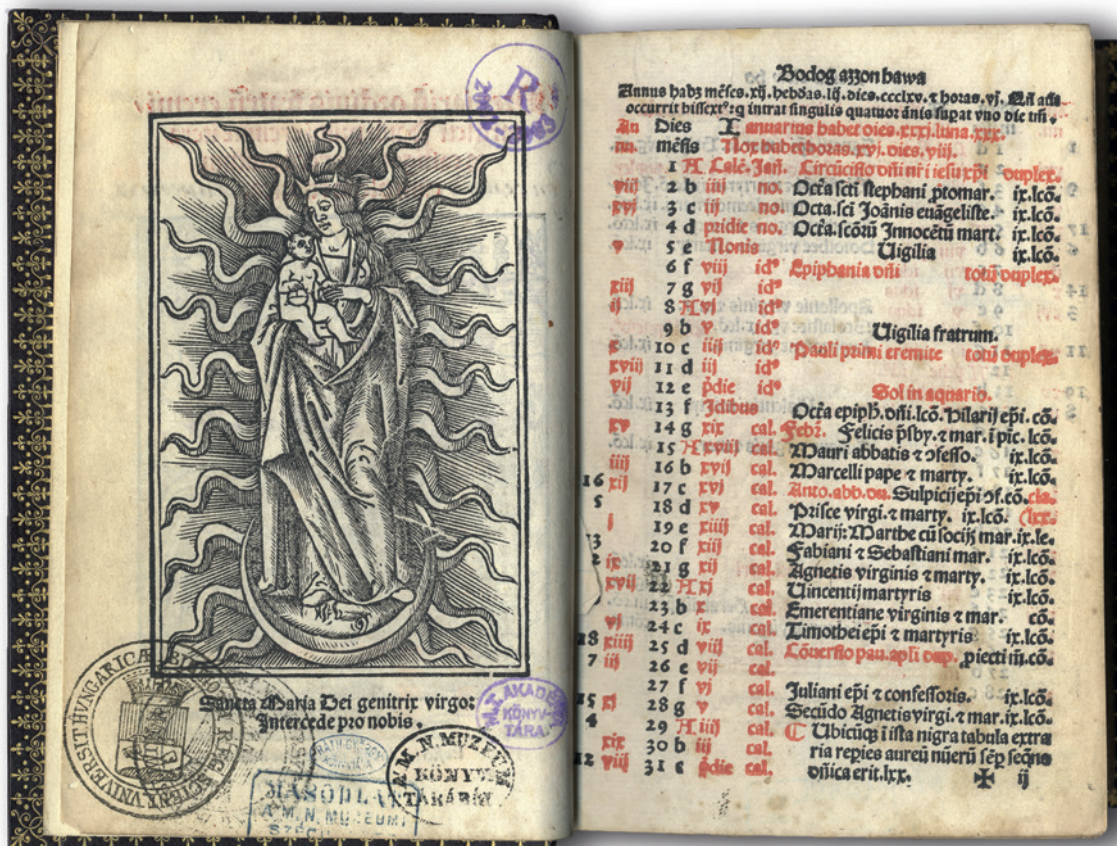 R
Sancta Maria Dei genitrix virgo:
Intercede pro nobis.
M. T. AKADÉMIA
KÖNYV-
TÁRA
A M. N. MUZEUM
KÖNYV
TÁRÁBÓL
MÁSODLAT
A M. N. MUZEUMI
Bodog azzon hawa
Annus habz mēses. xij. hebdōas. lij. dies. ccclxv. ⁊ horas. vj.
occurrit bissextꝰ: q intrat singulis quatuor ānis supat vno die
An Dies Ianuarius habet dies. xxxj. luna. xxx.
nu. mēsis Nox habet horas. xvj. dies. viij.
1 A Calē. Jañ. Circūcisio dñi nr̄i iesu xp̄i duplex.
viij 2 b iiij no. Octa sc̄ti stephani ꝓtomar. ix. lcō.
xvj 3 c iij no. Octa. sci Joānis euāgeliste. ix. lcō.
4 d pridie no. Octa. scōrū Innocētū mart. ix. lcō.
v 5 e Nonis Uigilia ix. lcō.
6 f viij idꝰ Epiphania dñi totū duplex.
xiij 7 g vij idꝰ
ij 8 A vj idꝰ
9 b v idꝰ Uigilia fratrum.
x 10 c iiij idꝰ Pauli primi eremite totū duplex.
xviij 11 d iij idꝰ
vij 12 e p̄die idꝰ Sol in aquario.
13 f Idibus Octa epiph. dñi. lcō. hilarij ep̄i. cō.
xv 14 g xix cal. Febr. Felicis p̄sby. ⁊ mar. ī pic. lcō.
15 A xviij cal. Mauri abbatis ⁊ ↄfesso. ix. lcō.
iiij 16 b xvij cal. Marcelli pape ⁊ marty. ix. lcō.
16 xij 17 c xvj cal. Anto. abb. du. Sulpicij ep̄i ↄf. cō. cla.
5 18 d xv cal. Prisce virgi. ⁊ marty. ix. lcō. (lxx.
j 19 e xiiij cal. Marij: Marthe cū socijs mar. ix. le.
13 20 f xiij cal. Fabiani ⁊ Sebastiani mar. ix. lcō.
2 ix 21 g xij cal. Agnetis virginis ⁊ marty. ix. lcō.
xvij 22 A xj cal. Uincentij martyris ix. lcō.
23 b x cal. Emerentiane virginis ⁊ mar. cō.
vj 24 c ix cal. Timothei ep̄i ⁊ martyris ix. lcō.
18 xiiij 25 d viij cal. Cōuersio pau. apli dup. ꝓiecti m̄. cō.
7 iij 26 e vij cal.
27 f vj cal. Juliani ep̄i ⁊ confessoris. ix. lcō.
15 xj 28 g v cal. Secūdo Agnetis virgi. ⁊ mar. ix. lcō.
4 29 A iiij cal. ¶ Ubicūqȝ ī ista nigra tabula extra
xix 30 b iij cal. ria repies aureū nūerū sēp seqñs
12 viij 31 c p̄die cal. dñica erit. lxx. ✠ ij